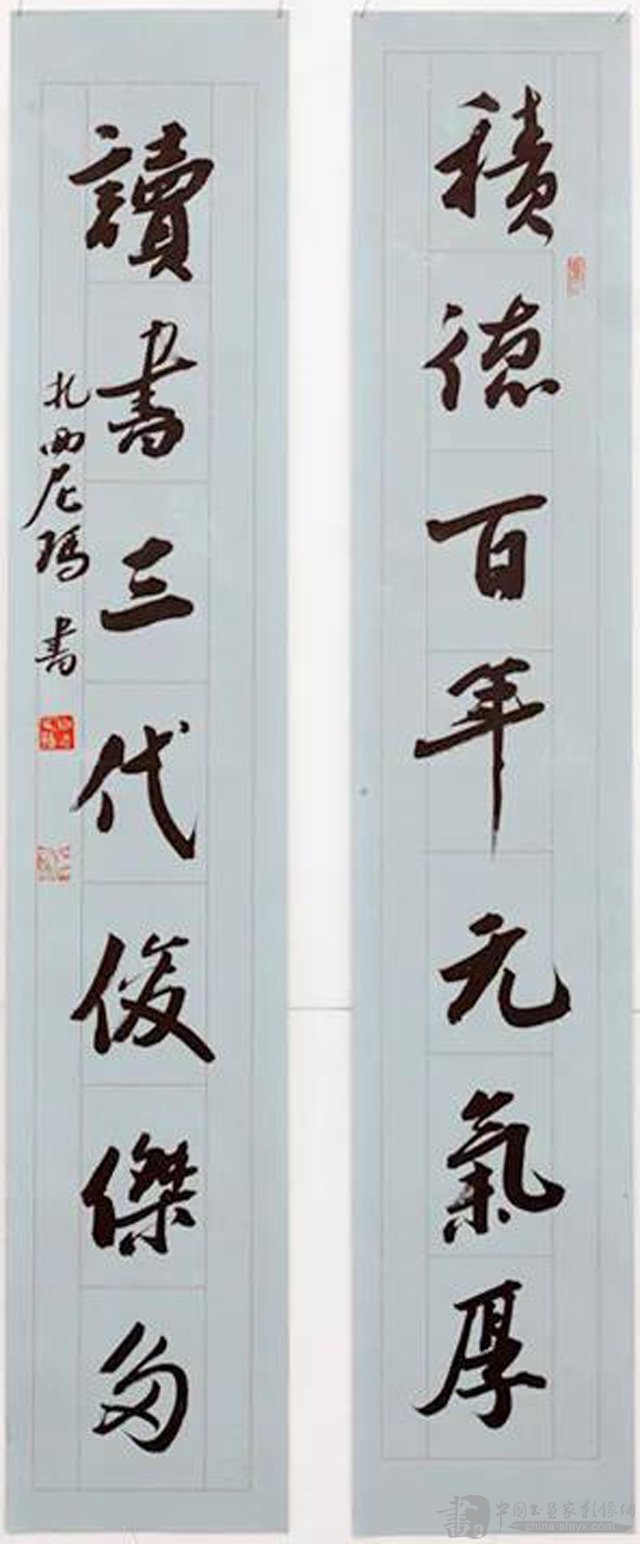 積德百年元氣厚
讀書三代俊傑多
扎西尼瑪書
中国书画家影像网
china-shjyx.com